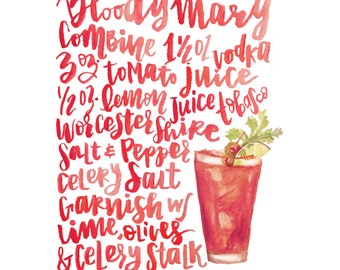 Bloody Mary
Combine 1 1/2 oz vodka
3 oz. tomato juice
1/2 oz. lemon juice tobasco
Worcestershire
Salt & Pepper
Celery Salt
Garnish w/
Lime, olives
& Celery Stalk